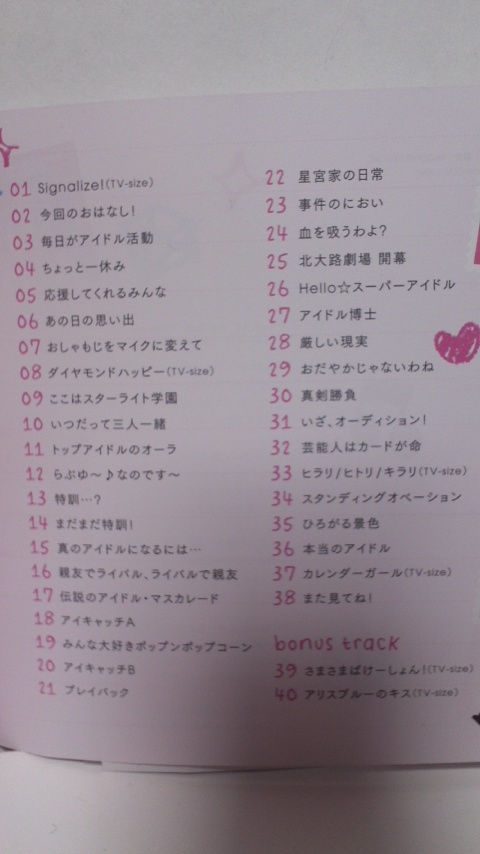 01 Signalize!(TV-size)
02 今回のおはなし!
03 毎日がアイドル活動
04 ちょっと一休み
05 応援してくれるみんな
06 あの日の思い出
07 おしゃもじをマイクに変えて
08 ダイヤモンドハッピー(TV-size)
09 ここはスターライト学園
10 いつだって三人一緒
11 トップアイドルのオーラ
12 らぶゆ〜♪なのです〜
13 特訓…?
14 まだまだ特訓!
15 真のアイドルになるには…
16 親友でライバル、ライバルで親友
17 伝説のアイドル・マスカレード
18 アイキャッチA
19 みんな大好きポップンポップコーン
20 アイキャッチB
21 プレイバック
22 星宮家の日常
23 事件のにおい
24 血を吸うわよ?
25 北大路劇場 開幕
26 Hello☆スーパーアイドル
27 アイドル博士
28 厳しい現実
29 おだやかじゃないわね
30 真剣勝負
31 いざ、オーディション!
32 芸能人はカードが命
33 ヒラリ/ヒトリ/キラリ(TV-size)
34 スタンディングオベーション
35 ひろがる景色
36 本当のアイドル
37 カレンダーガール(TV-size)
38 また見てね!
bonus track
39 さまさまばけーしょん!(TV-size)
40 アリスブルーのキス(TV-size)